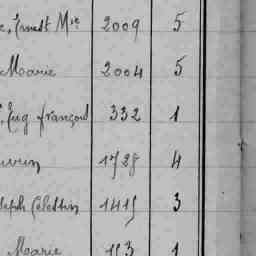 Ernest Mie 2009 5
Marie 2004 5
Eug françois 332 1
1728 4
Célestin 1415 3
Marie 153 1